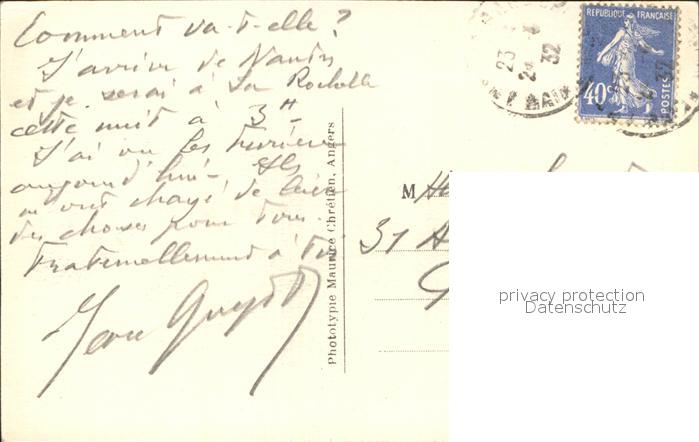 Comment va-t-elle ?
J'arrive de Nantes
et je serai à La Rochelle
cette nuit à 3H
J'ai vu les
aujourd'hui - Ils
m'ont chargé de
des choses pour tous.
Fraternellement à Toi
Jean
Phototypie Maurice Chrétien, Angers
REPUBLIQUE FRANÇAISE
40c
POSTES
23
32
M
31
privacy protection
Datenschutz